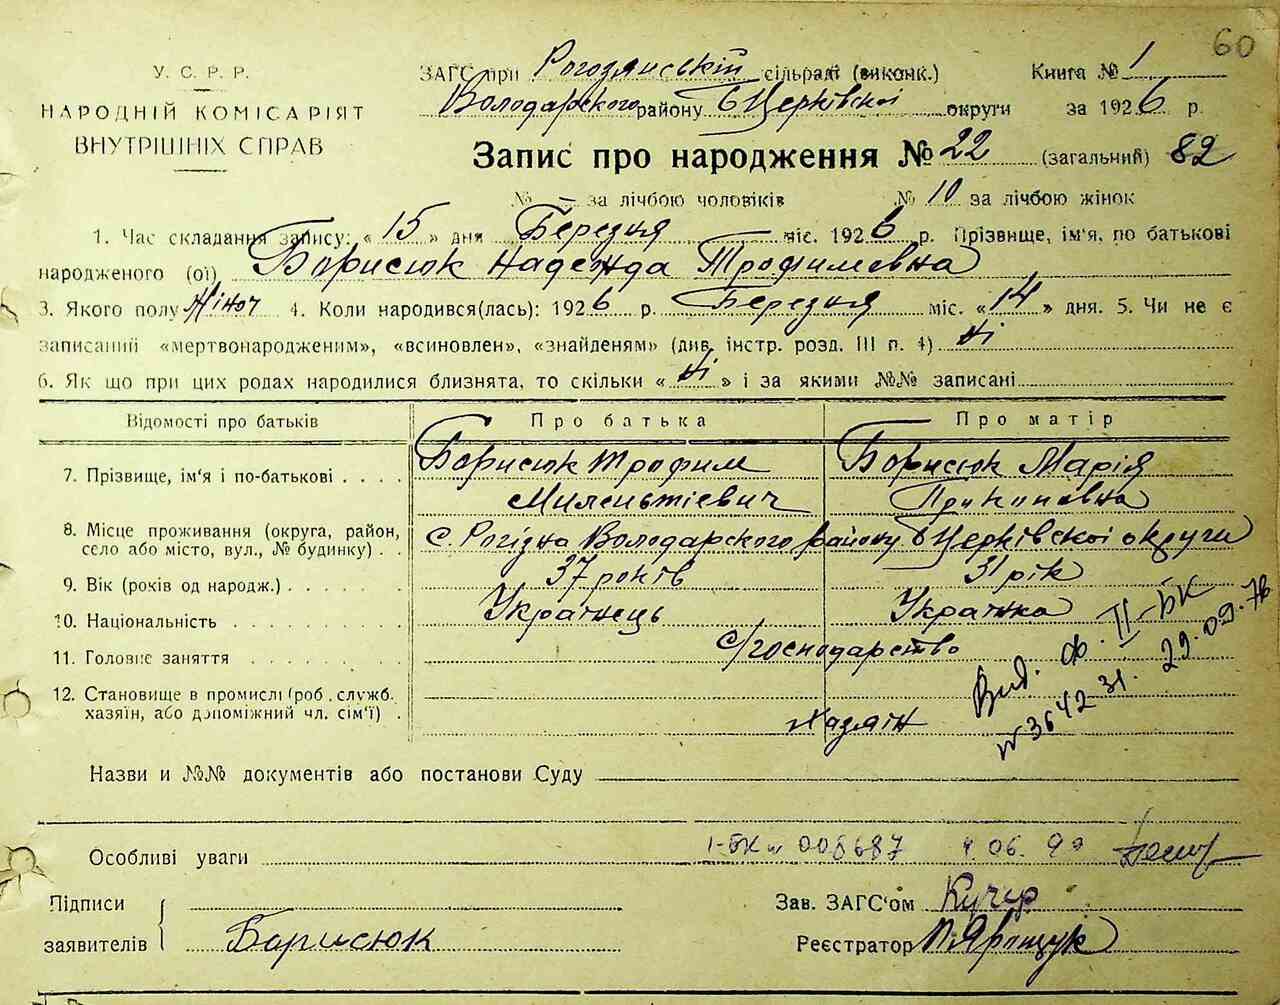 60
У. С. Р. Р.
НАРОДНІЙ КОМІСАРІЯТ
ВНУТРІШНІХ СПРАВ
ЗАГС при Рогозянській сільраді (виконк.) Книга № 1
Володарского району БЦерківскої округи за 1926 р.
Запис про народження № 22 (загальний) 82
№ за лічбою чоловіків № 10 за лічбою жінок
1. Час складання запису: « 15 » дня Березня міс. 1926 р. Прізвище, ім'я, по батькові
народженого (ої) Борисюк Надежда Трофимовна
3. Якого полу Жіноч 4. Коли народився(лась): 1926 р. Березня міс. « 14 » дня. 5. Чи не є
записаний «мертвонародженим», «всиновлен», «знайденям» (див. інстр. розд. III п. 4) Ні
6. Як що при цих родах народилися близнята, то скільки « Ні » і за якими №№ записані
Відомості про батьків Про батька Про матір
7. Прізвище, ім'я і по-батькові Борисюк Трофим Борисюк Марія
Милентіевич Прокоповна
8. Місце проживання (округа, район,
село або місто, вул., № будинку) с. Рогізна Володарского району БЦерківскої округи
9. Вік (років од народж.) 37 років 31 рік
10. Національність Українець Українка
11. Головне заняття с/господарство
12. Становище в промислі (роб., служб.
хазяїн, або допоміжний чл. сім'ї) Хазяін
Вид. ф. II-БК
№ 3642 31. 29.09.76
Назви и №№ документів або постанови Суду
Особливі уваги І-БК № 008687 06. 99
Підписи
заявителів Борисюк
Зав. ЗАГС'ом Кучер
Реєстратор П.Ярощук